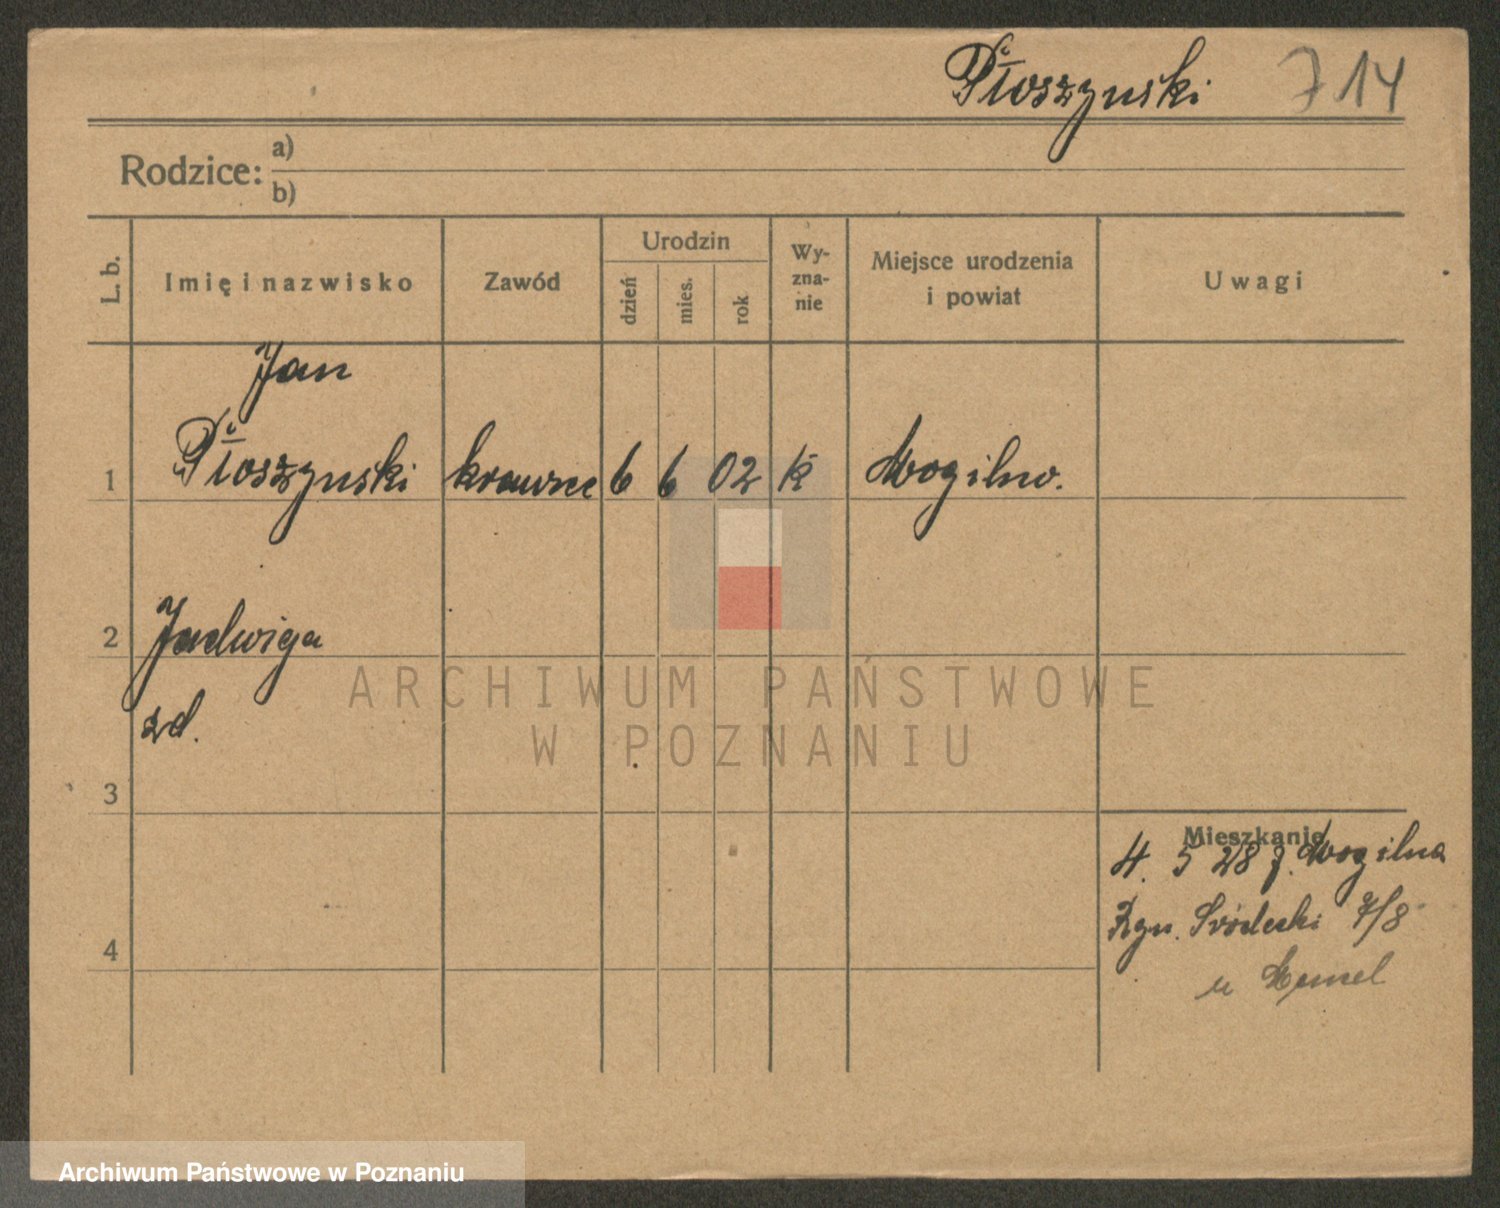 Płoszynski 714
Rodzice: a)
b)
L. b.
Imię i nazwisko
Zawód
Urodzin
dzień
mies.
rok
Wy-
zna-
nie
Miejsce urodzenia
i powiat
Uwagi
Jan
1 Płoszynski krawiec 6 6 02 k Mogilno.
2 Jadwiga
zd.
3
Mieszkanie
4. 5 28 z. Mogilna
Ryn. Śródecki 7/8
u Hemel
4
ARCHIWUM PAŃSTWOWE
W POZNANIU
Archiwum Państwowe w Poznaniu